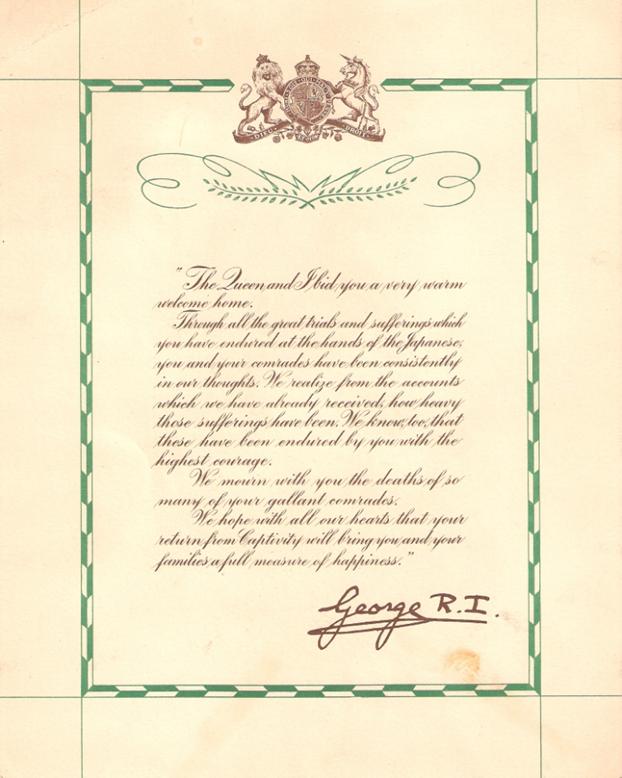 HONI·SOIT·QUI·MAL·Y·PENSE
DIEU ET MON DROIT
"The Queen and I bid you a very warm
welcome home.
Through all the great trials and sufferings which
you have endured at the hands of the Japanese,
you and your comrades have been consistently
in our thoughts. We realize from the accounts
which we have already received, how heavy
those sufferings have been. We know, too, that
these have been endured by you with the
highest courage.
We mourn with you the deaths of so
many of your gallant comrades.
We hope with all our hearts that your
return from Captivity will bring you and your
families a full measure of happiness."
George R.I.